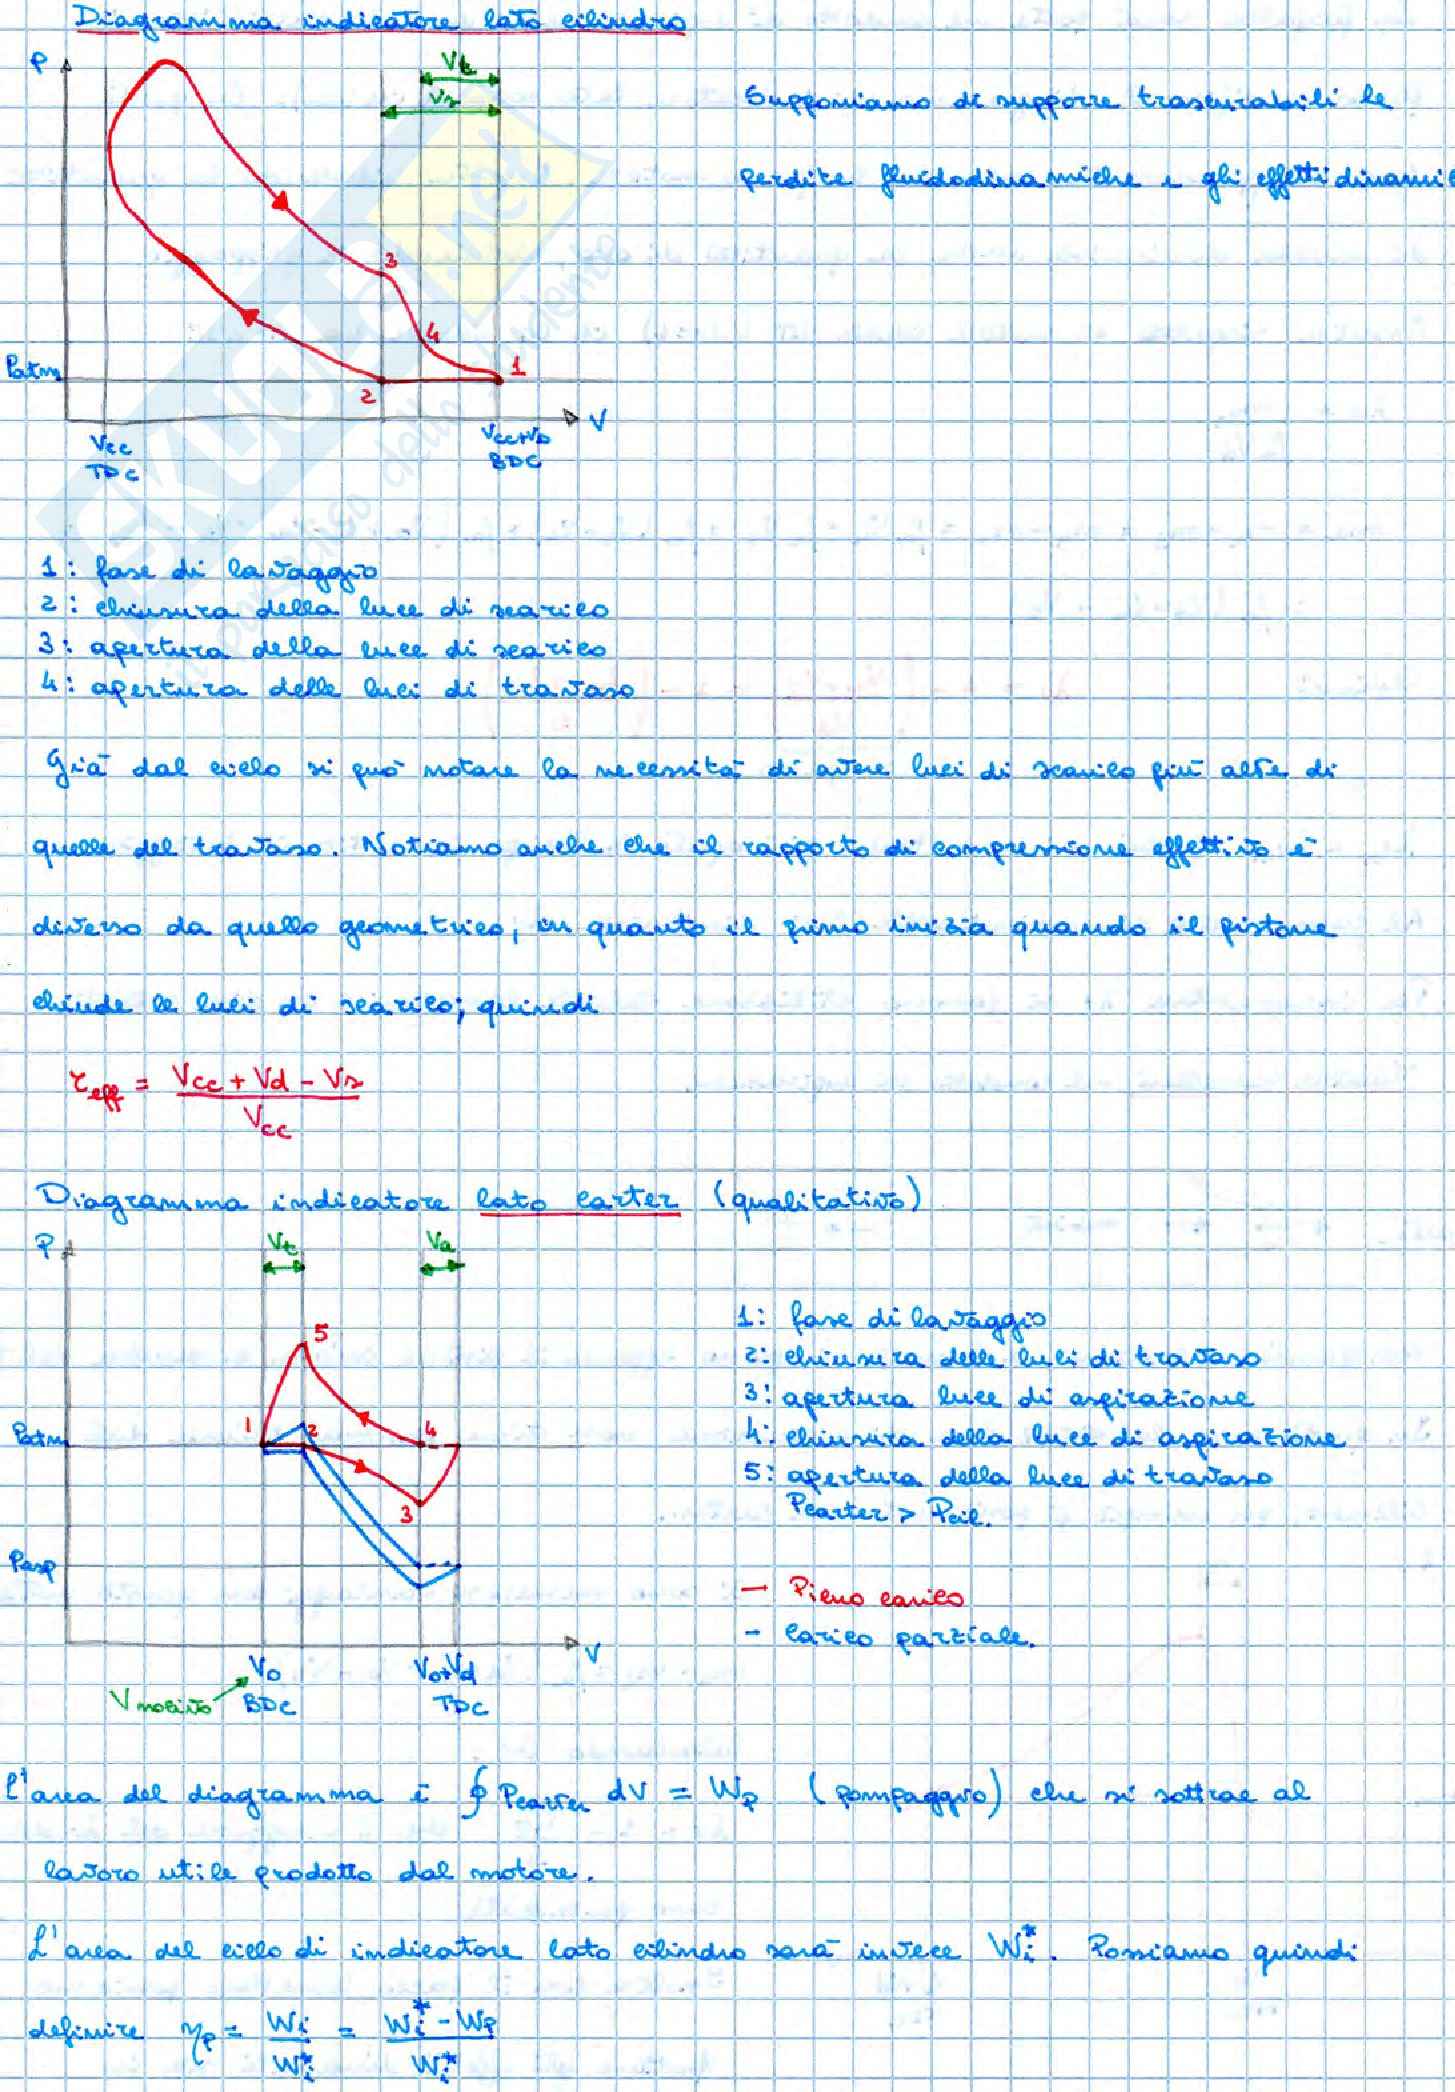 Diagramma indicatore lato cilindro
P
Vt
Vs
Supponiamo di supporre trascurabili le
perdite fluidodinamiche e gli effetti dinamici
3
4
1
Patm
2
V
Vcc
TDC
Vcc+Vd
BDC
1: fase di lavaggio
2: chiusura della luce di scarico
3: apertura della luce di scarico
4: apertura delle luci di travaso
Già dal ciclo si può notare la necessità di avere luci di scarico più alte di
quelle del travaso. Notiamo anche che il rapporto di compressione effettivo è
diverso da quello geometrico, in quanto il primo inizia quando il pistone
chiude le luci di scarico; quindi
r_eff = (Vcc + Vd - Vs) / Vcc
Diagramma indicatore lato carter (qualitativo)
P
Vt
Va
5
1
2
4
3
Patm
Pasp
V
V0
BDC
V0+Vd
TDC
Vnocivo
1: fase di lavaggio
2: chiusura delle luci di travaso
3: apertura luce di aspirazione
4: chiusura della luce di aspirazione
5: apertura della luce di travaso
Pcarter > Pcil.
— Pieno carico
- Carico parziale.
l'area del diagramma è ∮ Pcarter dV = Wp (pompaggio) che si sottrae al
lavoro utile prodotto dal motore.
L'area del ciclo di indicatore lato cilindro sarà invece Wi*. Possiamo quindi
definire ηp = Wi / Wi* = (Wi* - Wp) / Wi*
SKUOLA.net
il paradiso dello studente